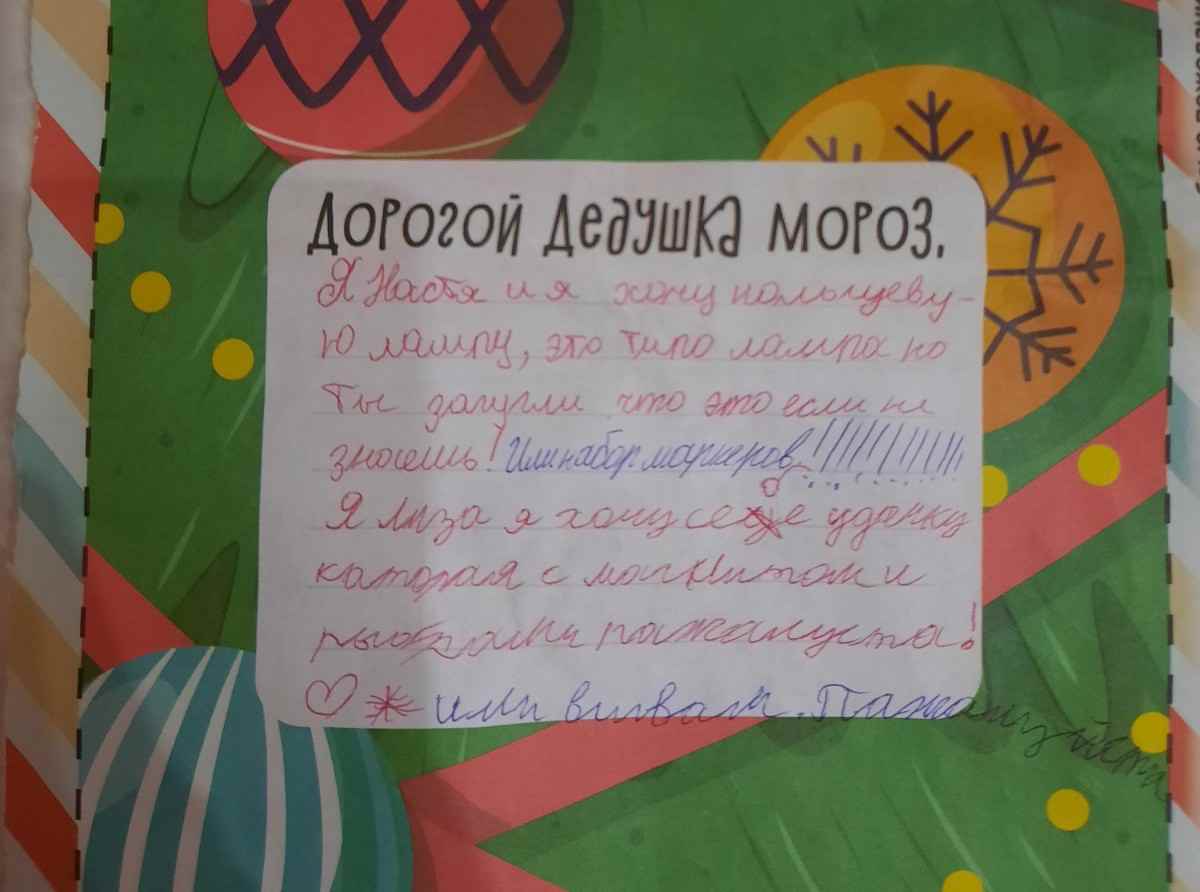 ДОРОГОЙ ДЕДУШКА МОРОЗ,
Я Настя и я хочу кольцеву-
ю лампу, это типо лампа но
ты загугли что это если не
знаешь! Или набор маркеров!!!!!!!!!!!!!
Я Лиза я хочу себе удачку
каторая с магнитом и
рыбками пажалуста!
или вивам. Пажалуйста